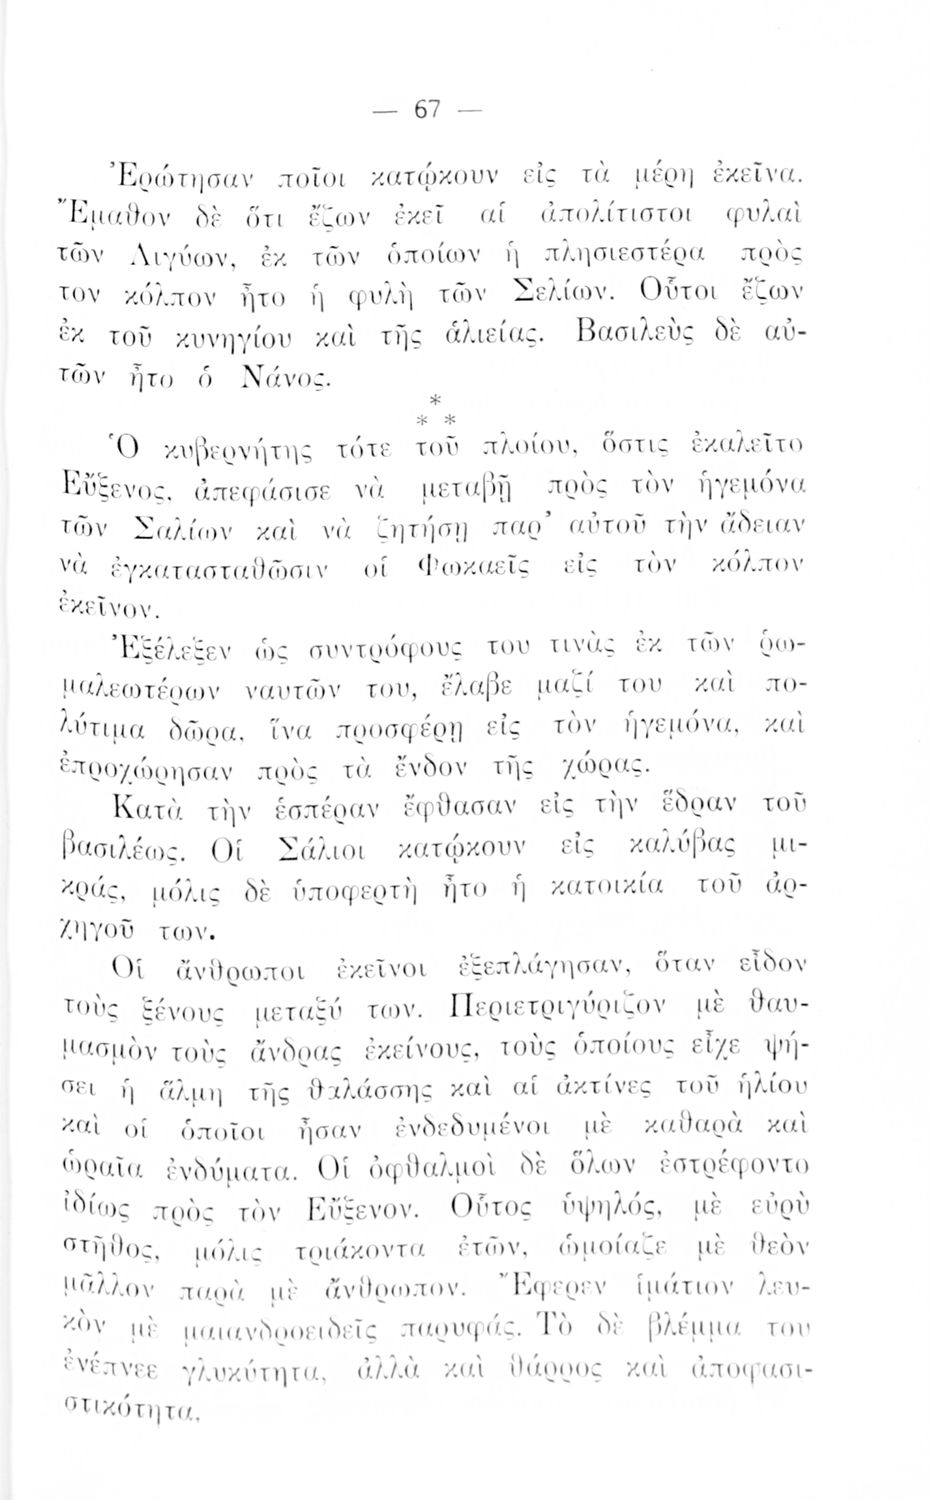 — 67 —
Ἐρώτησαν ποῖοι κατῴκουν εἰς τὰ μέρη ἐκεῖνα.
Ἔμαθον δὲ ὅτι ἔζων ἐκεῖ αἱ ἀπολίτιστοι φυλαὶ
τῶν Λιγύων, ἐκ τῶν ὁποίων ἡ πλησιεστέρα πρὸς
τον κόλπον ἦτο ἡ φυλὴ τῶν Σελίων. Οὗτοι ἔζων
ἐκ τοῦ κυνηγίου καὶ τῆς ἁλιείας. Βασιλεὺς δὲ αὐ-
τῶν ἦτο ὁ Νάνος.
*
* *
Ὁ κυβερνήτης τότε τοῦ πλοίου, ὅστις ἐκαλεῖτο
Εὔξενος, ἀπεφάσισε νὰ μεταβῇ πρὸς τὸν ἡγεμόνα
τῶν Σαλίων καὶ νὰ ζητήσῃ παρ’ αὐτοῦ τὴν ἄδειαν
νὰ ἐγκατασταθῶσιν οἱ Φωκαεῖς εἰς τὸν κόλπον
ἐκεῖνον.
Ἐξέλεξεν ὡς συντρόφους του τινὰς ἐκ τῶν ῥω-
μαλεωτέρων ναυτῶν του, ἔλαβε μαζί του καὶ πο-
λύτιμα δῶρα, ἵνα προσφέρῃ εἰς τὸν ἡγεμόνα, καὶ
ἐπροχώρησαν πρὸς τὰ ἔνδον τῆς χώρας.
Κατὰ τὴν ἑσπέραν ἔφθασαν εἰς τὴν ἕδραν τοῦ
βασιλέως. Οἱ Σάλιοι κατῴκουν εἰς καλύβας μι-
κράς, μόλις δὲ ὑποφερτὴ ἦτο ἡ κατοικία τοῦ ἀρ-
χηγοῦ των.
Οἱ ἄνθρωποι ἐκεῖνοι ἐξεπλάγησαν, ὅταν εἶδον
τοὺς ξένους μεταξύ των. Περιετριγύριζον μὲ θαυ-
μασμὸν τοὺς ἄνδρας ἐκείνους, τοὺς ὁποίους εἶχε ψή-
σει ἡ ἅλμη τῆς θαλάσσης καὶ αἱ ἀκτίνες τοῦ ἡλίου
καὶ οἱ ὁποῖοι ἦσαν ἐνδεδυμένοι μὲ καθαρὰ καὶ
ὡραῖα ἐνδύματα. Οἱ ὀφθαλμοὶ δὲ ὅλων ἐστρέφοντο
ἰδίως πρὸς τὸν Εὔξενον. Οὗτος ὑψηλός, μὲ εὐρὺ
στῆθος, μόλις τριάκοντα ἐτῶν, ὡμοίαζε μὲ θεὸν
μᾶλλον παρὰ μὲ ἄνθρωπον. Ἔφερεν ἱμάτιον λευ-
κὸν μὲ μαιανδροειδεῖς παρυφάς. Τὸ δὲ βλέμμα του
ἐνέπνεε γλυκύτητα, ἀλλὰ καὶ θάρρος καὶ ἀποφασι-
στικότητα.